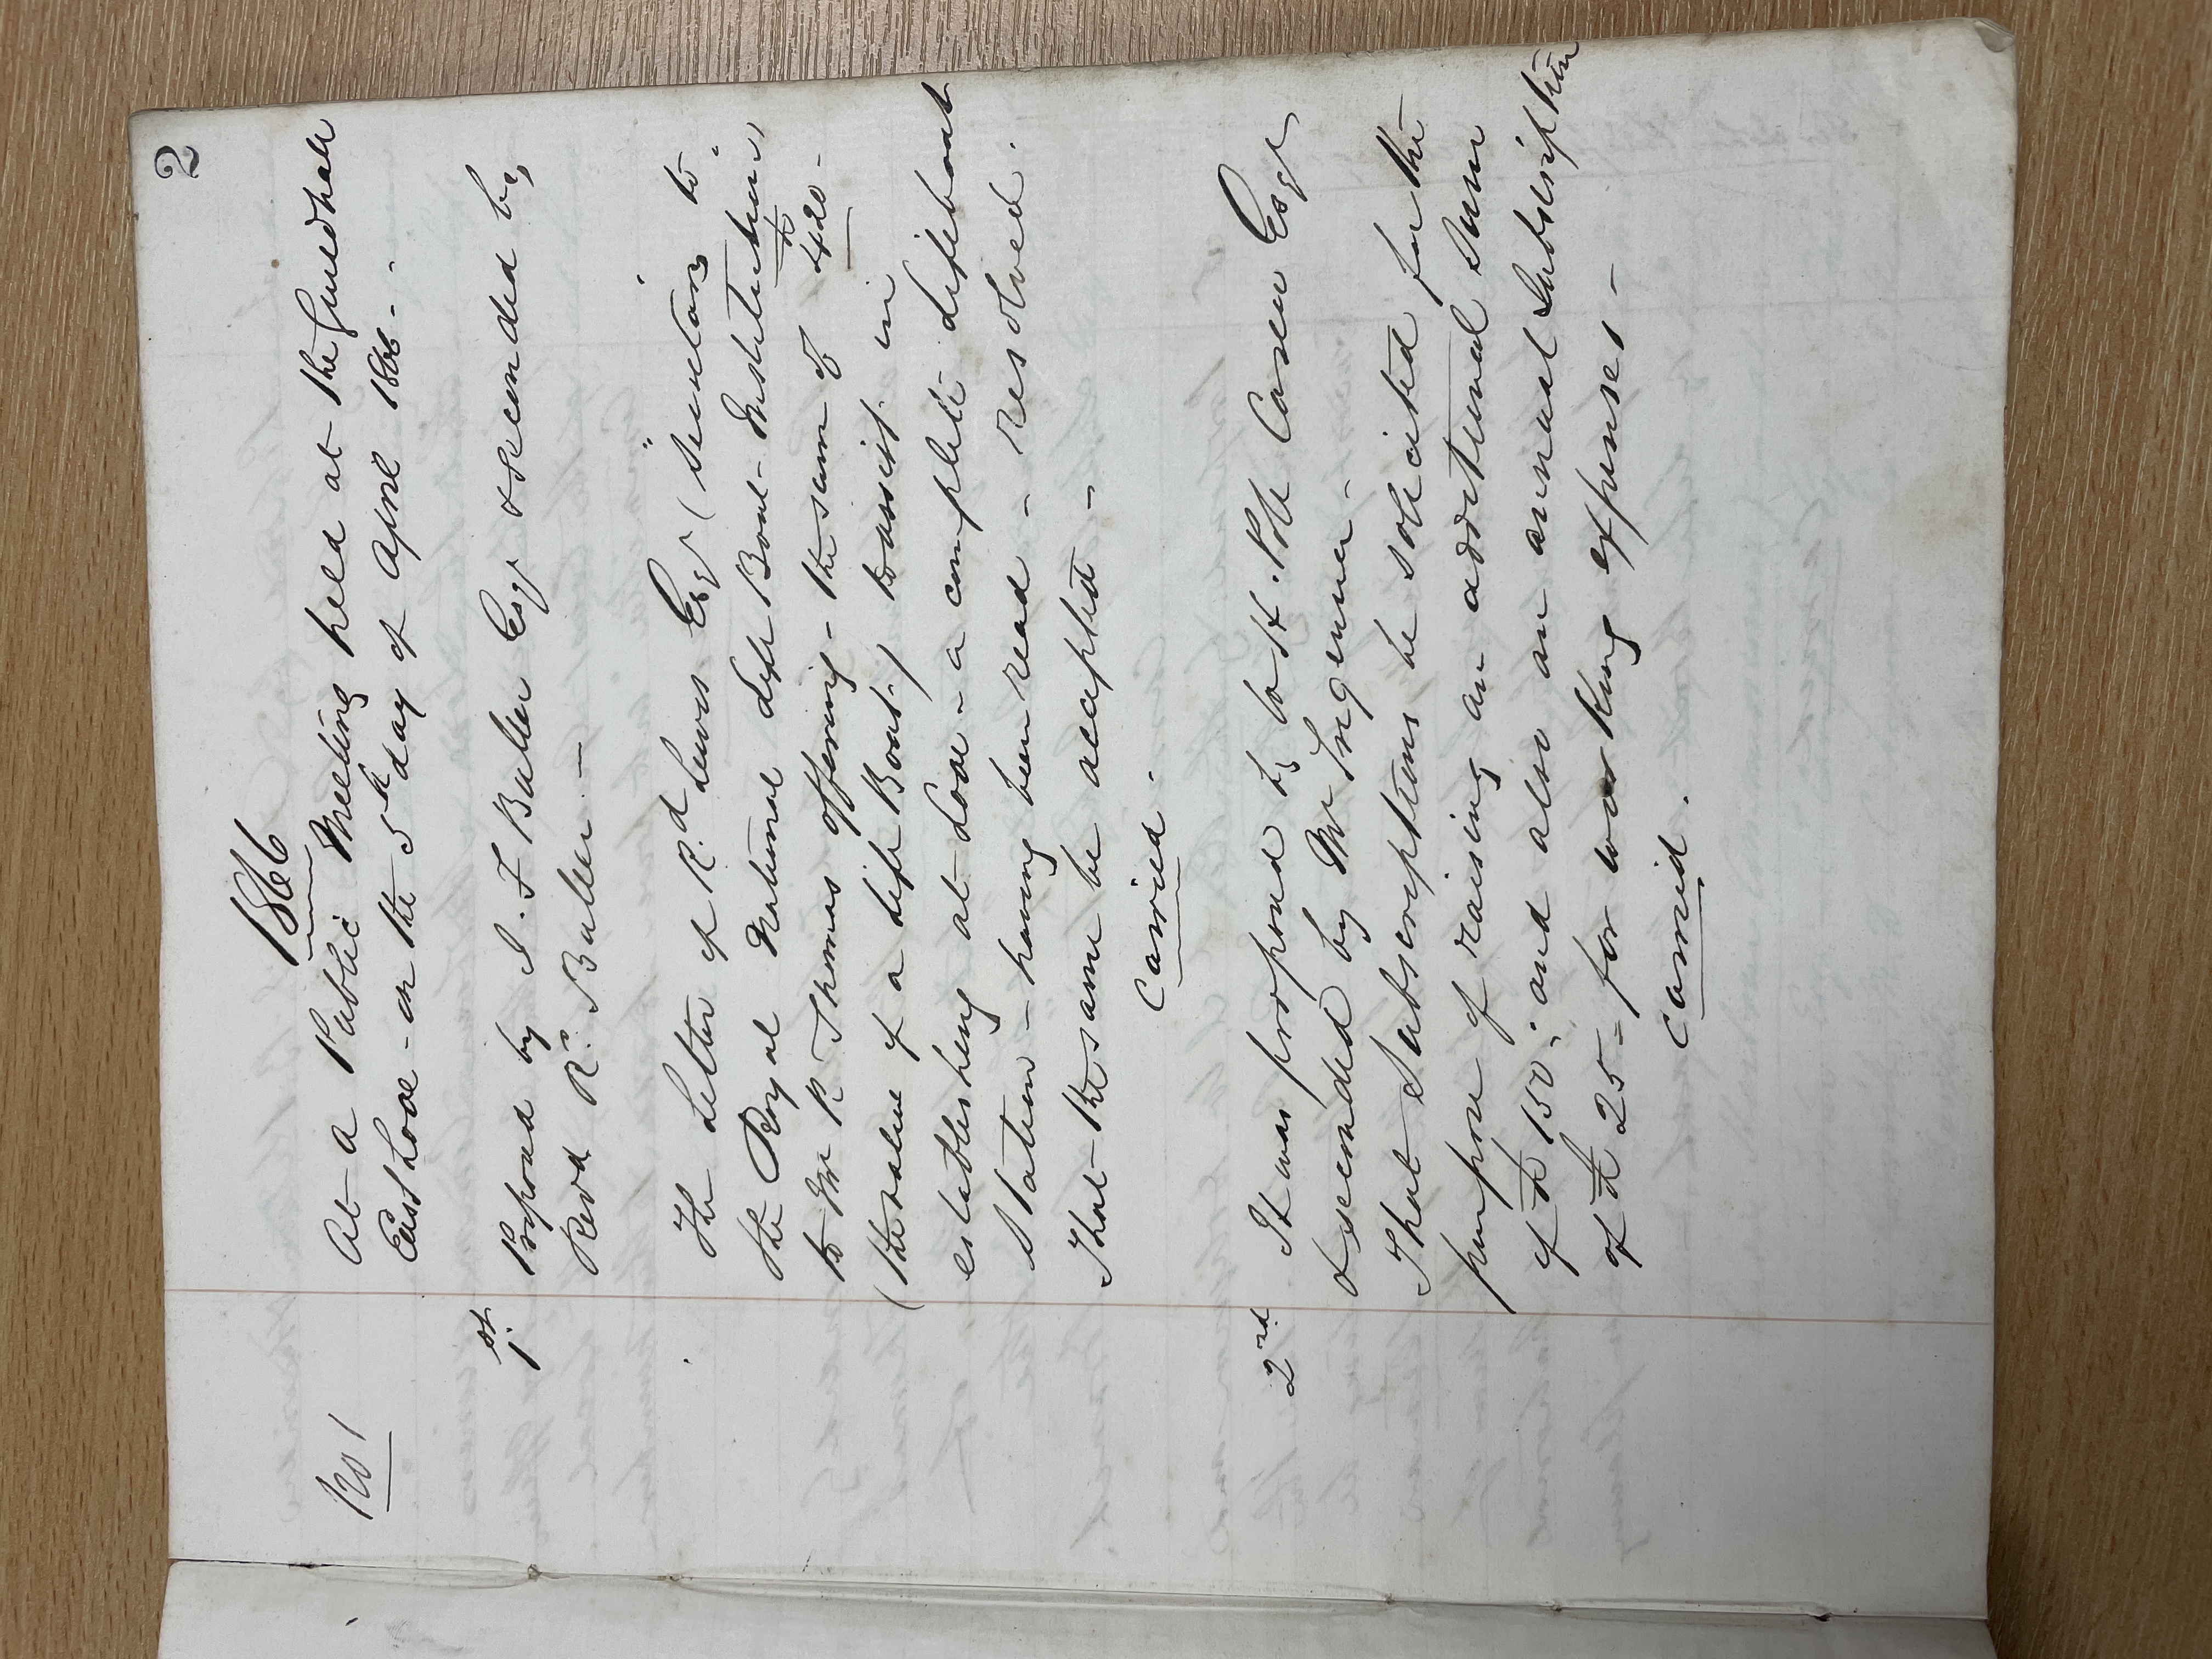 2
1866
No 1
At a Public Meeting held at the Guildhall
East Looe - on the 5th day of April 1866 -
1st. Proposed by I. F Buller Esqr & seconded by
Revd Rd. Buller -
The Letter of Rd Lewis Esqr (Secretary to
the Royal National Life Boat - Institution)
to Mr R Thomas offering - the sum of £420 -
(the value of a Life Boat) to assist in
establishing at Looe - a complete Lifeboat
Station - having been read - resolved.
That the same be accepted -
Carried.
2nd It was proposed by to H. Pole Carew Esqr
& seconded by Mr
That Subscriptions be solicited for the
purpose of raising an additional Sum
of £150; and also an annual Subscription
of £25 - for working expenses -
Carried.